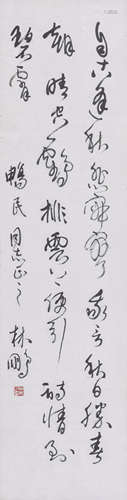 自古逢秋悲寂寥我言秋日勝春
朝晴空一鶴排雲上便引詩情到
碧霄
暢民同志正之 林鵬